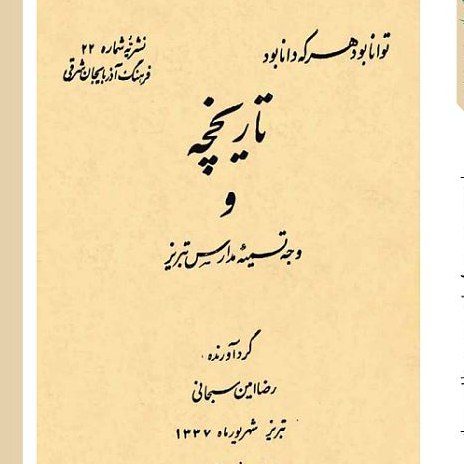 توانا بود هر که دانا بود
نشریه شماره ۲۲
فرهنگ آذربایجان شرقی
تاریخچه
و
وجه تسمیهٔ مدارس تبریز
گردآورنده
رضا امین سبحانی
تبریز شهریور ماه ۱۳۳۷